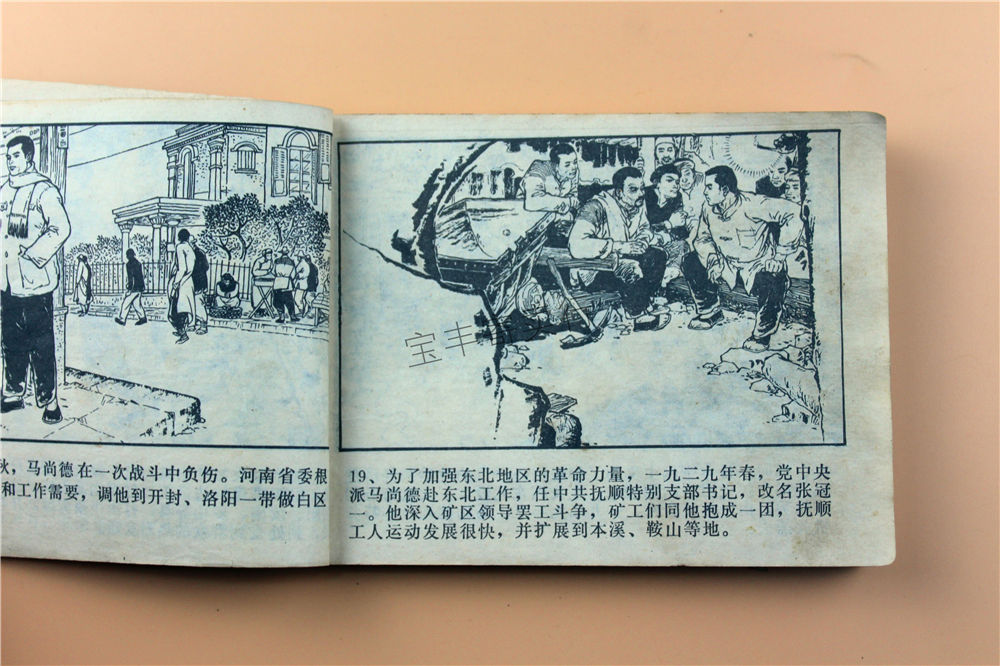 秋，马尚德在一次战斗中负伤。河南省委根
和工作需要，调他到开封、洛阳一带做白区
19、为了加强东北地区的革命力量，一九二九年春，党中央
派马尚德赴东北工作，任中共抚顺特别支部书记，改名张冠
一。他深入矿区领导罢工斗争，矿工们同他抱成一团，抚顺
工人运动发展很快，并扩展到本溪、鞍山等地。
宝丰